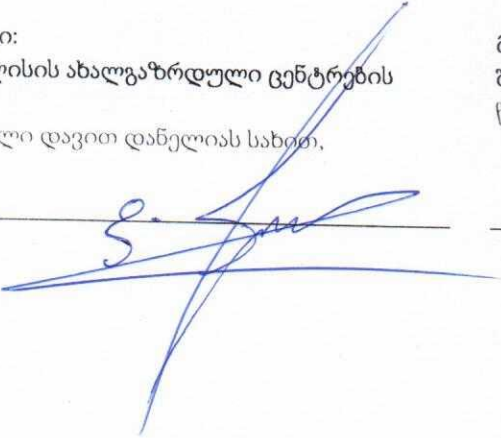 ი:
ლისის ახალგაზრდული ცენტრების
ლი დავით დანელიას სახით,